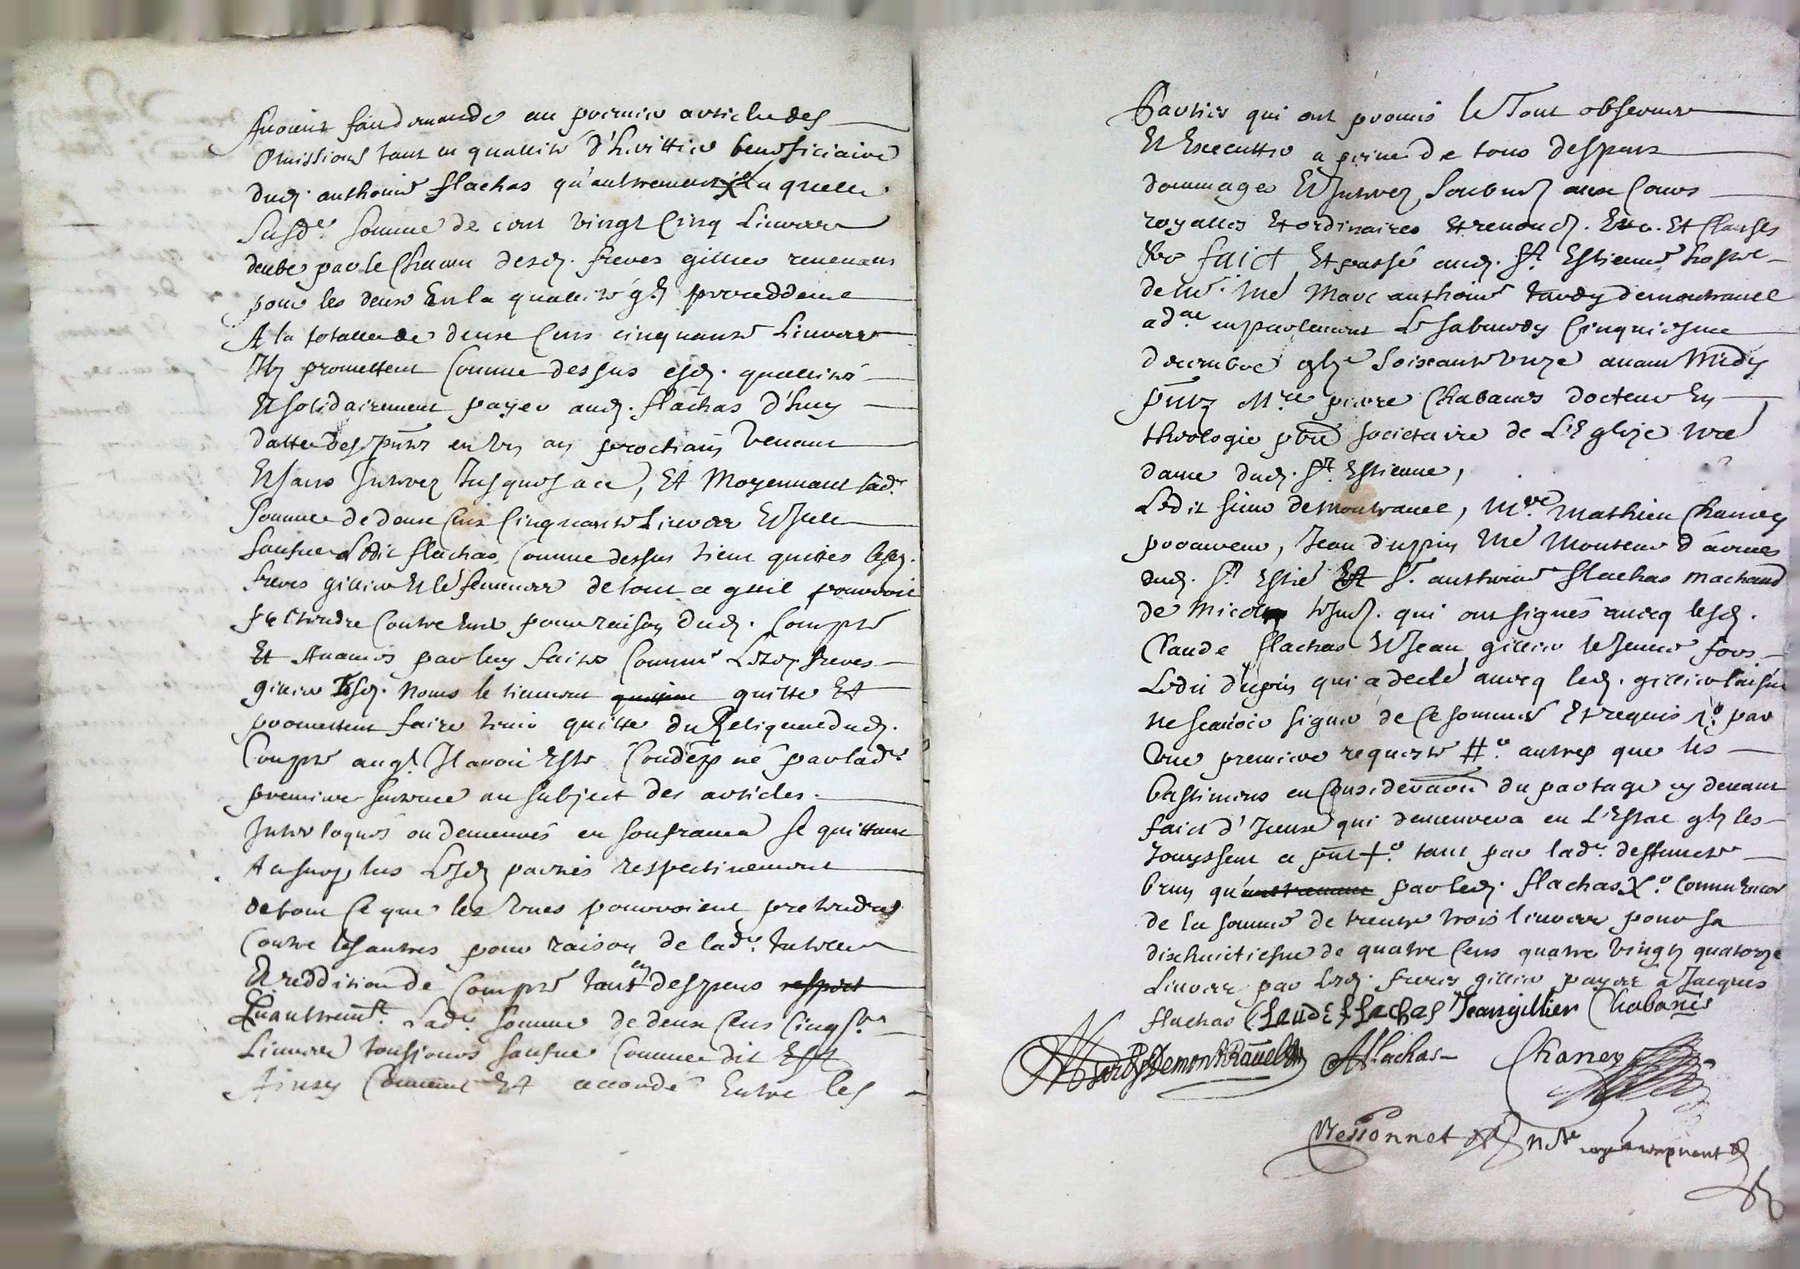 Avoient fait demande au premier article des
Omissions tant en quallité d'herittier beneficiaire
dud. anthoine flachas qu'autrement X laquelle
susd.e somme de cent vingt cinq Liuvres
deube par le Chacun desd. freres gillier revenant
pour les deux En la quallité q.l proceddent
A la totalle de deux Cens cinquante Liuvres
Ilz promettent Comme dessus esd. quallités
Et solidairement payer aud. flachas d'huy
datte des pntes en un an prochain venant
Et sans Interez Jusques a ce, Et Moyennant lad.e
Somme de deux Cens Cinquante Liuvres Et Icelle
Saufue Ledit flachas Comme dessus tient quittes lesd.
freres gillier et de tout ce qu'il pourroit
pretendre Contre eux pour raison dud. Compte
Et Avances par luy faites Comme Lesd. freres
gillier Esd. Noms le tiennent quitte Et
promettent faire tenir quitte du Reliqua dud.
Compte auq.l Il avoit Esté Condepné par lad.e
premiere sentence au subject des articles
Interloqués ou demeurés en soufrance se quittant
Au surplus Lesd. parties respectivement
de tout Ce que les Unes pourroient pretendre
Contre les autres pour raison de lad.e tutelle
Et reddition de Compte tant en despens respect
Qu'autremt. Lad.e somme de deux Cens Cinq.te
Liuvres tousjours saufue Comme dit Est
Ainsy Convenu Et accordé Entre les
Parties qui ont promis le Tout observer
Et Executter a peine de tous despens
dommages Et Interez Soubmis aux Cours
royalles Et ordinaires Et renoncé. Etc. Et Clauses
&c faict Et passé aud. St. Estienne hostel
de Mr. Me Marc anthoine tardy de montravel
ad.at en parlement Le sabmedy Cinquiesme
decembre soixante unze avant Midy
pntz Mre pierre Chabanes docteur En
theologie pbre societaire de L'Eglize nre
dame dud. St. Estienne,
Ledit sieur de Montravel, Mre Mathieu Chaney
procureur, Jean dupin Me Monteur d'armes
dud. St. Estie Et Sr. anthoine flachas machand
de qui ont signés avecq lesd.
Claude flachas Et Jean gillier le Jeune fors
Ledit dupin qui a declé avecq led. gillier laisné
ne scavoir signer de Ce sommés Et requis par
Une premiere requeste #.e autres que les
bastimens en Consideration du partage cy devant
faict d'Iceux qui demeurera en L'Estat les
Jouyssent a pnt +.e tant par lad.e deffuncte
brun qu'autrement par led. flachas X.e Comm' Encor
de la somme de trente trois liuvres pour sa
dixhuictiesme de quatre Cens quatre vingtz quatorze
Liuvres par Lesd. freres gillier payée a Jacques
flachas CLAUDE FLachas Jean gillier Chabanes
Tardy Demontravel A flachas Chaney
Bessonnet Nre